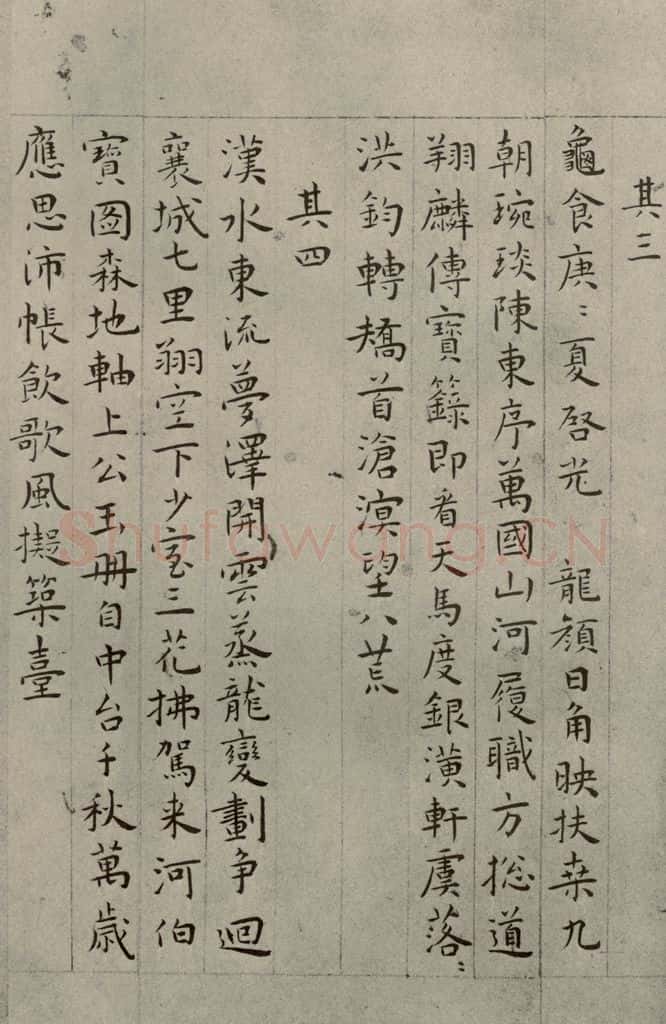 其三
龜食庚〻夏啓光 龍顏日角映扶桒九
朝琬琰陳東序萬國山河履職方摠道
翔麟傳寶籙即看天馬度銀潢軒虞落〻
洪鈞轉矯首滄溟望八荒
其四
漢水東流夢澤開雲蒸龍變劃争迴
襄城七里翔空下少室三花拂駕来河伯
寶圖森地軸上公玉冊自中台千秋萬歳
應思沛帳飲歌風擬築臺
Shufawang.CN